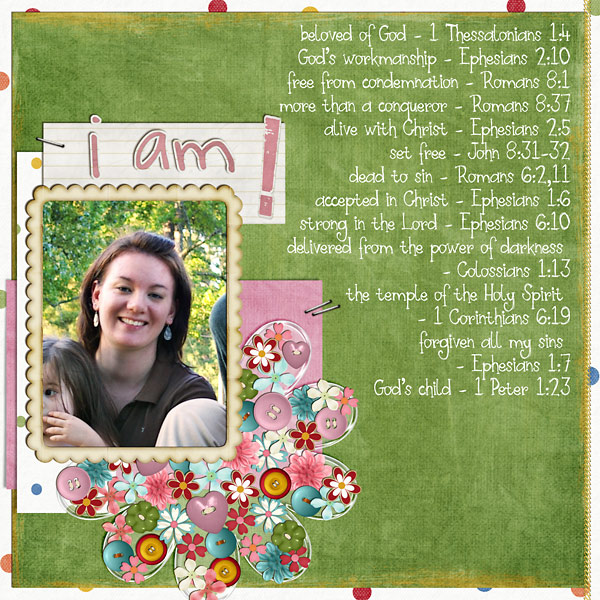 i am!
beloved of God - 1 Thessalonians 1:4
God's workmanship - Ephesians 2:10
free from condemnation - Romans 8:1
more than a conqueror - Romans 8:37
alive with Christ - Ephesians 2:5
set free - John 8:31-32
dead to sin - Romans 6:2,11
accepted in Christ - Ephesians 1:6
strong in the Lord - Ephesians 6:10
delivered from the power of darkness
- Colossians 1:13
the temple of the Holy Spirit
- 1 Corinthians 6:19
forgiven all my sins
- Ephesians 1:7
God's child - 1 Peter 1:23